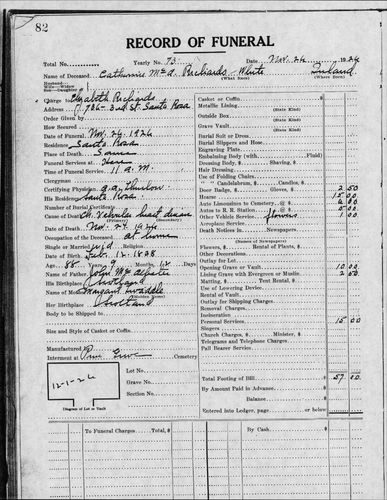 82
RECORD OF FUNERAL
Total No. Yearly No. 73. Date Nov. 26 1926
Name of Deceased Catherine Mc A. Richards - White
(What Race) (Where Born)
Husband
Wife—Widow
Son—Daughter
Charge to Elizabeth Richards
Address 726-3rd St. Santa Rosa
Order Given by
How Secured
Date of Funeral Nov. 26 1926
Residence Santa Rosa
Place of Death Same
Funeral Services at Here
Time of 11 a.m.
Clergyman
Certifying Physician
His Residence Santa Rosa
Number of Burial Certificate
Cause of Death Ch. Valvular heart disease
Date of Death Nov. 24 1926
Occupation of the Deceased at home
Single or Married wid Religion
Date of Birth Feb. 12-1838
Aged 88 Years 9 Months 12 Days
Name of Father John
His Birthplace Scotland
Name of Mother Margaret
(Maiden Name)
Her Birthplace Scotland
Body to be Shipped to
Size and Style of Casket or Coffin
Manufactured by
Interment at Cemetery
Lot No.
Grave No.
Section No.
12-1-26
Diagram of Lot or Vault
Casket or Coffin
Metallic Lining
(State Kind)
Outside Box
(State Kind)
Grave Vault
(State Kind)
Burial Robe
Burial Slippers and Hose
Engraving Plate
Embalming Body (with Fluid)
Dressing Body, $ Shaving, $
Hair Dressing
Use of Folding Chairs
" " Candelabrum, $ Candles, $
Door Badge, $ Gloves, $ 2 50
Hearse 15 00
Auto Limousines to Cemetery, @ $ 6 00
Autos to R. R. Station @ $ 5 00
Other Vehicle Service flowers 1 00
Aeroplane Service
Death Notices in Newspapers
(Names of Newspapers)
Flowers, $ Rental of Plants, $
Other Decorations
Outlay for Lot
Opening Grave or Vault 10 00
Lining Grave with Evergreen or Muslin 2 50
Matting, $ Tent Rental, $
Use of Lowering Device
Rental of Vault
Outlay for Shipping Charges
Removal Charges
Incineration
Personal Services 15 00
Singers
Church Charges, $ Minister, $
Telegrams and Telephone Charges, $
Pall Bearer Service
Total Footing of Bill $ 57 00
By Amount Paid in Advance
Balance
Entered into Ledger, page or below
To Funeral Charges Total, $ By Cash, $